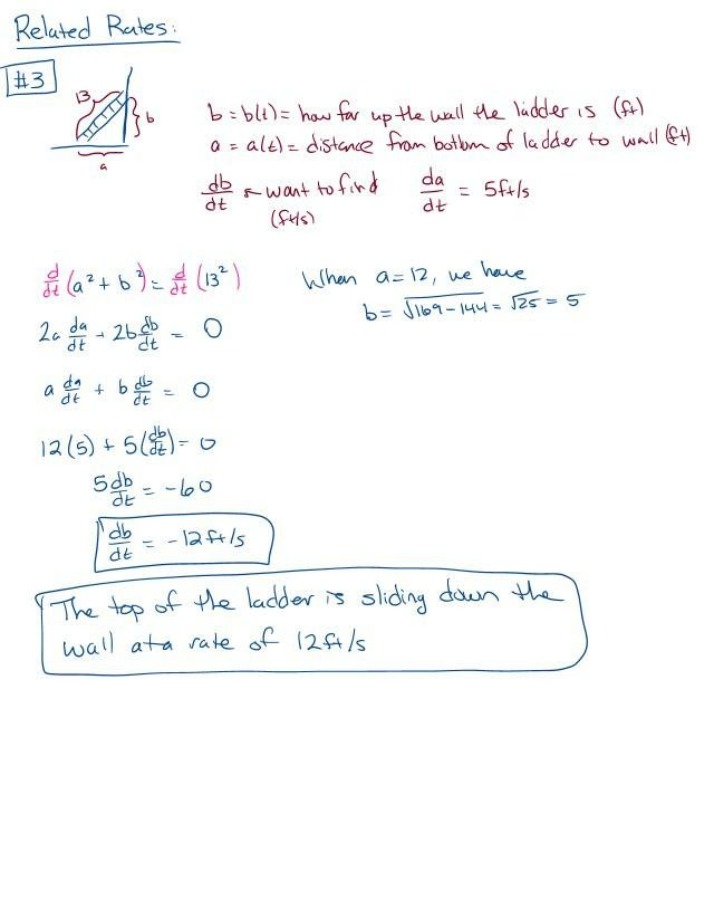 Related Rates:
#3
13
b
a
b = b(t) = how far up the wall the ladder is (ft)
a = a(t) = distance from bottom of ladder to wall (ft)
db/dt ← want to find da/dt = 5ft/s
(ft/s)
d/dt (a² + b²) = d/dt (13²)
When a=12, we have
b = √169-144 = √25 = 5
2a da/dt + 2b db/dt = 0
a da/dt + b db/dt = 0
12(5) + 5(db/dt) = 0
5 db/dt = -60
db/dt = -12ft/s
The top of the ladder is sliding down the
wall at a rate of 12ft/s